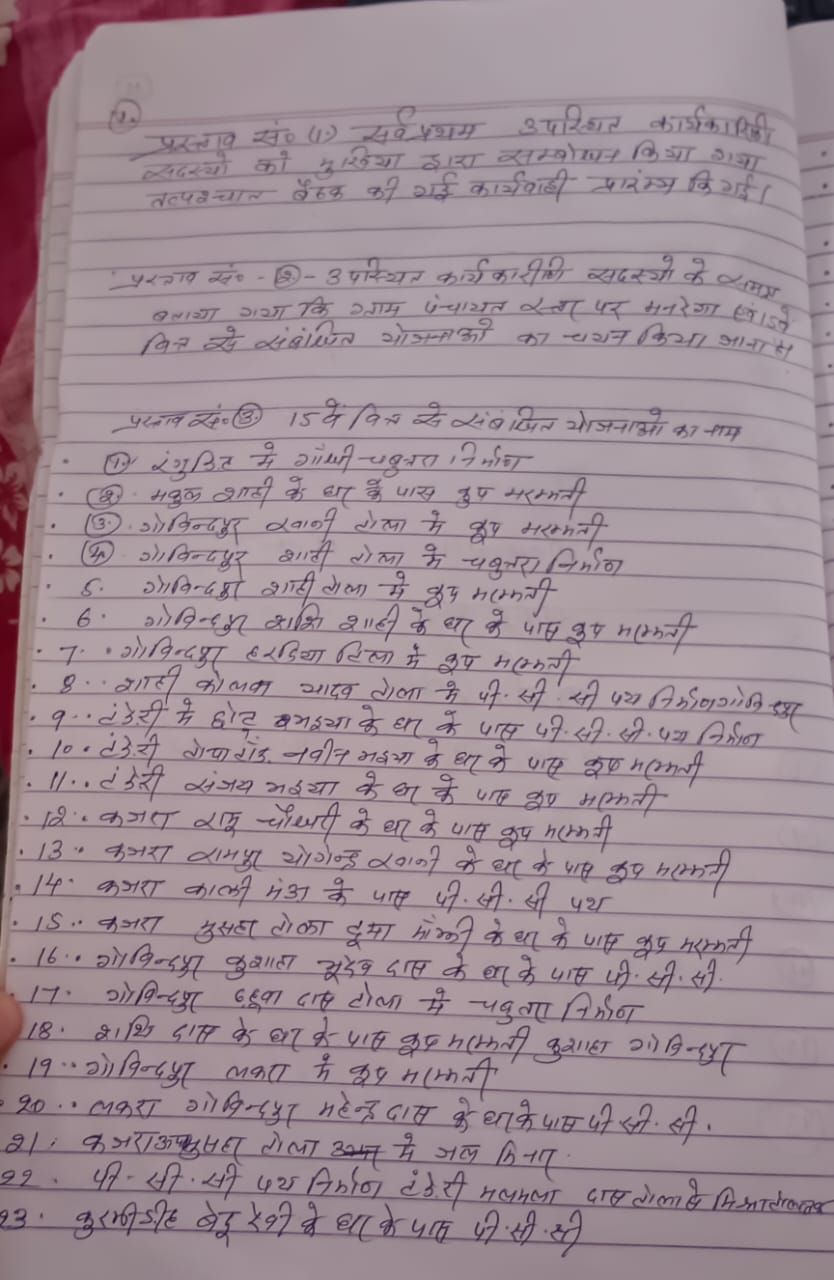 1.
प्रस्ताव सं० (1) सर्वप्रथम उपस्थित कार्यकारिणी
सदस्यो को मुखिया द्वारा सम्बोधन किया गया
तत्पश्चात बैठक की गई कार्यवाही प्रारंम्भ कि गई।
प्रस्ताव सं० - (2) - उपस्थित कार्यकारीणी सदस्यो के समक्ष
बताया गया कि ग्राम पंचायत स्तर पर मनरेगा एवं 15वे
वित्त से संबंधित योजनाओ का चयन किया जाना है
प्रस्ताव सं० (3) 15वें वित्त से संबंधित योजनाओ का नाम
(1) में गाँधी चबुतरा निर्माण
(2) मकुल शाही के घर के पास कुप मरम्मती
(3) गोविन्दपुर रवानी टोला में कूप मरम्मती
(4) गोविन्दपुर शाही टोला में चबुतरा निर्माण
5. गोविन्दपुर शाही टोला में कूप मरम्मती
6. गोविन्दपुर शशि शाही के घर के पास कूप मरम्मती
7. गोविन्दपुर हरडिया में कूप मरम्मती
8. शाही यादव टोला में पी. सी. सी पथ निर्माण गोविन्दपुर
9. टंडेरी में छोटू भइया के घर के पास पी. सी. सी. पथ निर्माण
10. टंडेरी नवीन भइया के घर के पास कूप मरम्मती
11. टंडेरी संजय भइया के घर के पास कूप मरम्मती
12. कजरा राजू चौधरी के घर के पास कूप मरम्मती
13. कजरा रामपुर योगेन्द्र रवानी के घर के पास कूप मरम्मती
14. कजरा काली मंडा के पास पी. सी. सी पथ
15. कजरा मुसहर टोला टूमा माँझी के घर के पास कूप मरम्मती
16. गोविन्दपुर कुशाहा दास के घर के पास पी. सी. सी.
17. गोविन्दपुर दास टोला में चबुतरा निर्माण
18. शशि दास के घर के पास कूप मरम्मती कुशाहा गोविन्दपुर
19. गोविन्दपुर लकरा में कूप मरम्मती
20. लकरा गोविन्दपुर महेन्द्र दास के घर के पास पी. सी. सी.
21. कजरा मुसहर टोला में जल मिनार
22. पी. सी. सी पथ निर्माण टंडेरी दास टोला से
23. कुरमीडीह देवी के घर के पास पी. सी. सी